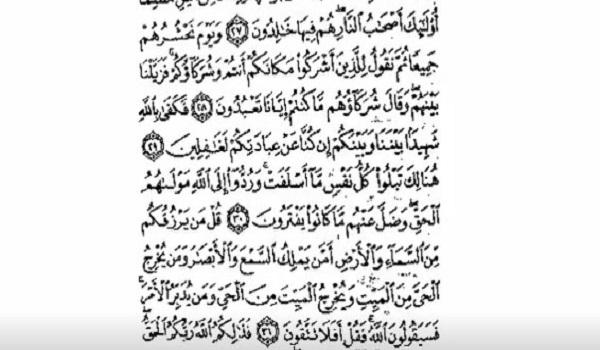 أُوْلَٰٓئِكَ أَصْحَٰبُ ٱلنَّارِ هُمْ فِيهَا خَٰلِدُونَ ٢٧ وَيَوْمَ نَحْشُرُهُمْ
جَمِيعًا ثُمَّ نَقُولُ لِلَّذِينَ أَشْرَكُوا۟ مَكَانَكُمْ أَنتُمْ وَشُرَكَآؤُكُمْ فَزَيَّلْنَا
بَيْنَهُمْ وَقَالَ شُرَكَآؤُهُم مَّا كُنتُمْ إِيَّانَا تَعْبُدُونَ ٢٨ فَكَفَىٰ بِٱللَّهِ
شَهِيدًۢا بَيْنَنَا وَبَيْنَكُمْ إِن كُنَّا عَنْ عِبَادَتِكُمْ لَغَٰفِلِينَ ٢٩
هُنَالِكَ تَبْلُوا۟ كُلُّ نَفْسٍ مَّآ أَسْلَفَتْ وَرُدُّوٓا۟ إِلَى ٱللَّهِ مَوْلَىٰهُمُ
ٱلْحَقِّ وَضَلَّ عَنْهُم مَّا كَانُوا۟ يَفْتَرُونَ ٣٠ قُلْ مَن يَرْزُقُكُم
مِّنَ ٱلسَّمَآءِ وَٱلْأَرْضِ أَمَّن يَمْلِكُ ٱلسَّمْعَ وَٱلْأَبْصَٰرَ وَمَن يُخْرِجُ
ٱلْحَىَّ مِنَ ٱلْمَيِّتِ وَيُخْرِجُ ٱلْمَيِّتَ مِنَ ٱلْحَىِّ وَمَن يُدَبِّرُ ٱلْأَمْرَ
فَسَيَقُولُونَ ٱللَّهُ فَقُلْ أَفَلَا تَتَّقُونَ ٣١ فَذَٰلِكُمُ ٱللَّهُ رَبُّكُمُ ٱلْحَقُّ